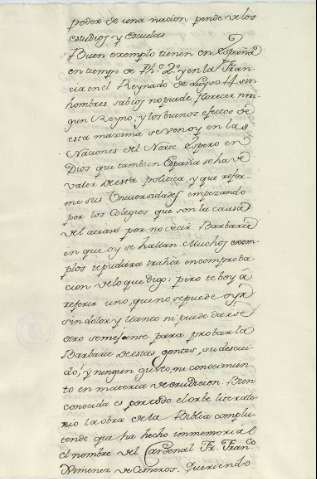 poder de una nacion pende de los
estudios y escuelas
Buen exemplo tienen en España
en tiempo de Phe. 2º y en la Fran
cia en el Reynado de Luis 14. sin
hombres sabios no puede florecer nin
gun Reyno, y los buenos efectos de
esta maxima se ven oy en las
Naciones del Norte. Espero en
Dios que tambien España se ha de
valer de esta politica, y que refor
me sus Universidades empezando
por los Colegios que son la causa
del atraso por no decir Barbarie
en que oy se hallan. Muchos exem
plos te pudiera traher en comproba
cion de lo que digo; pero te boy á
referir uno, que no se puede oyr
sin dolor, y llanto ni puede darse
otro semejante para probar la
Barbarie de estas gentes, su descui
do, y ningun gusto, ni conocimien
to en materia de erudicion. Bien
conocida es por todo el orbe litera
rio la obra de la Biblia complu
tense que ha hecho immemorial
el nombre del Cardenal Fr. Franco.
Ximenez de Cisneros. Queriendo